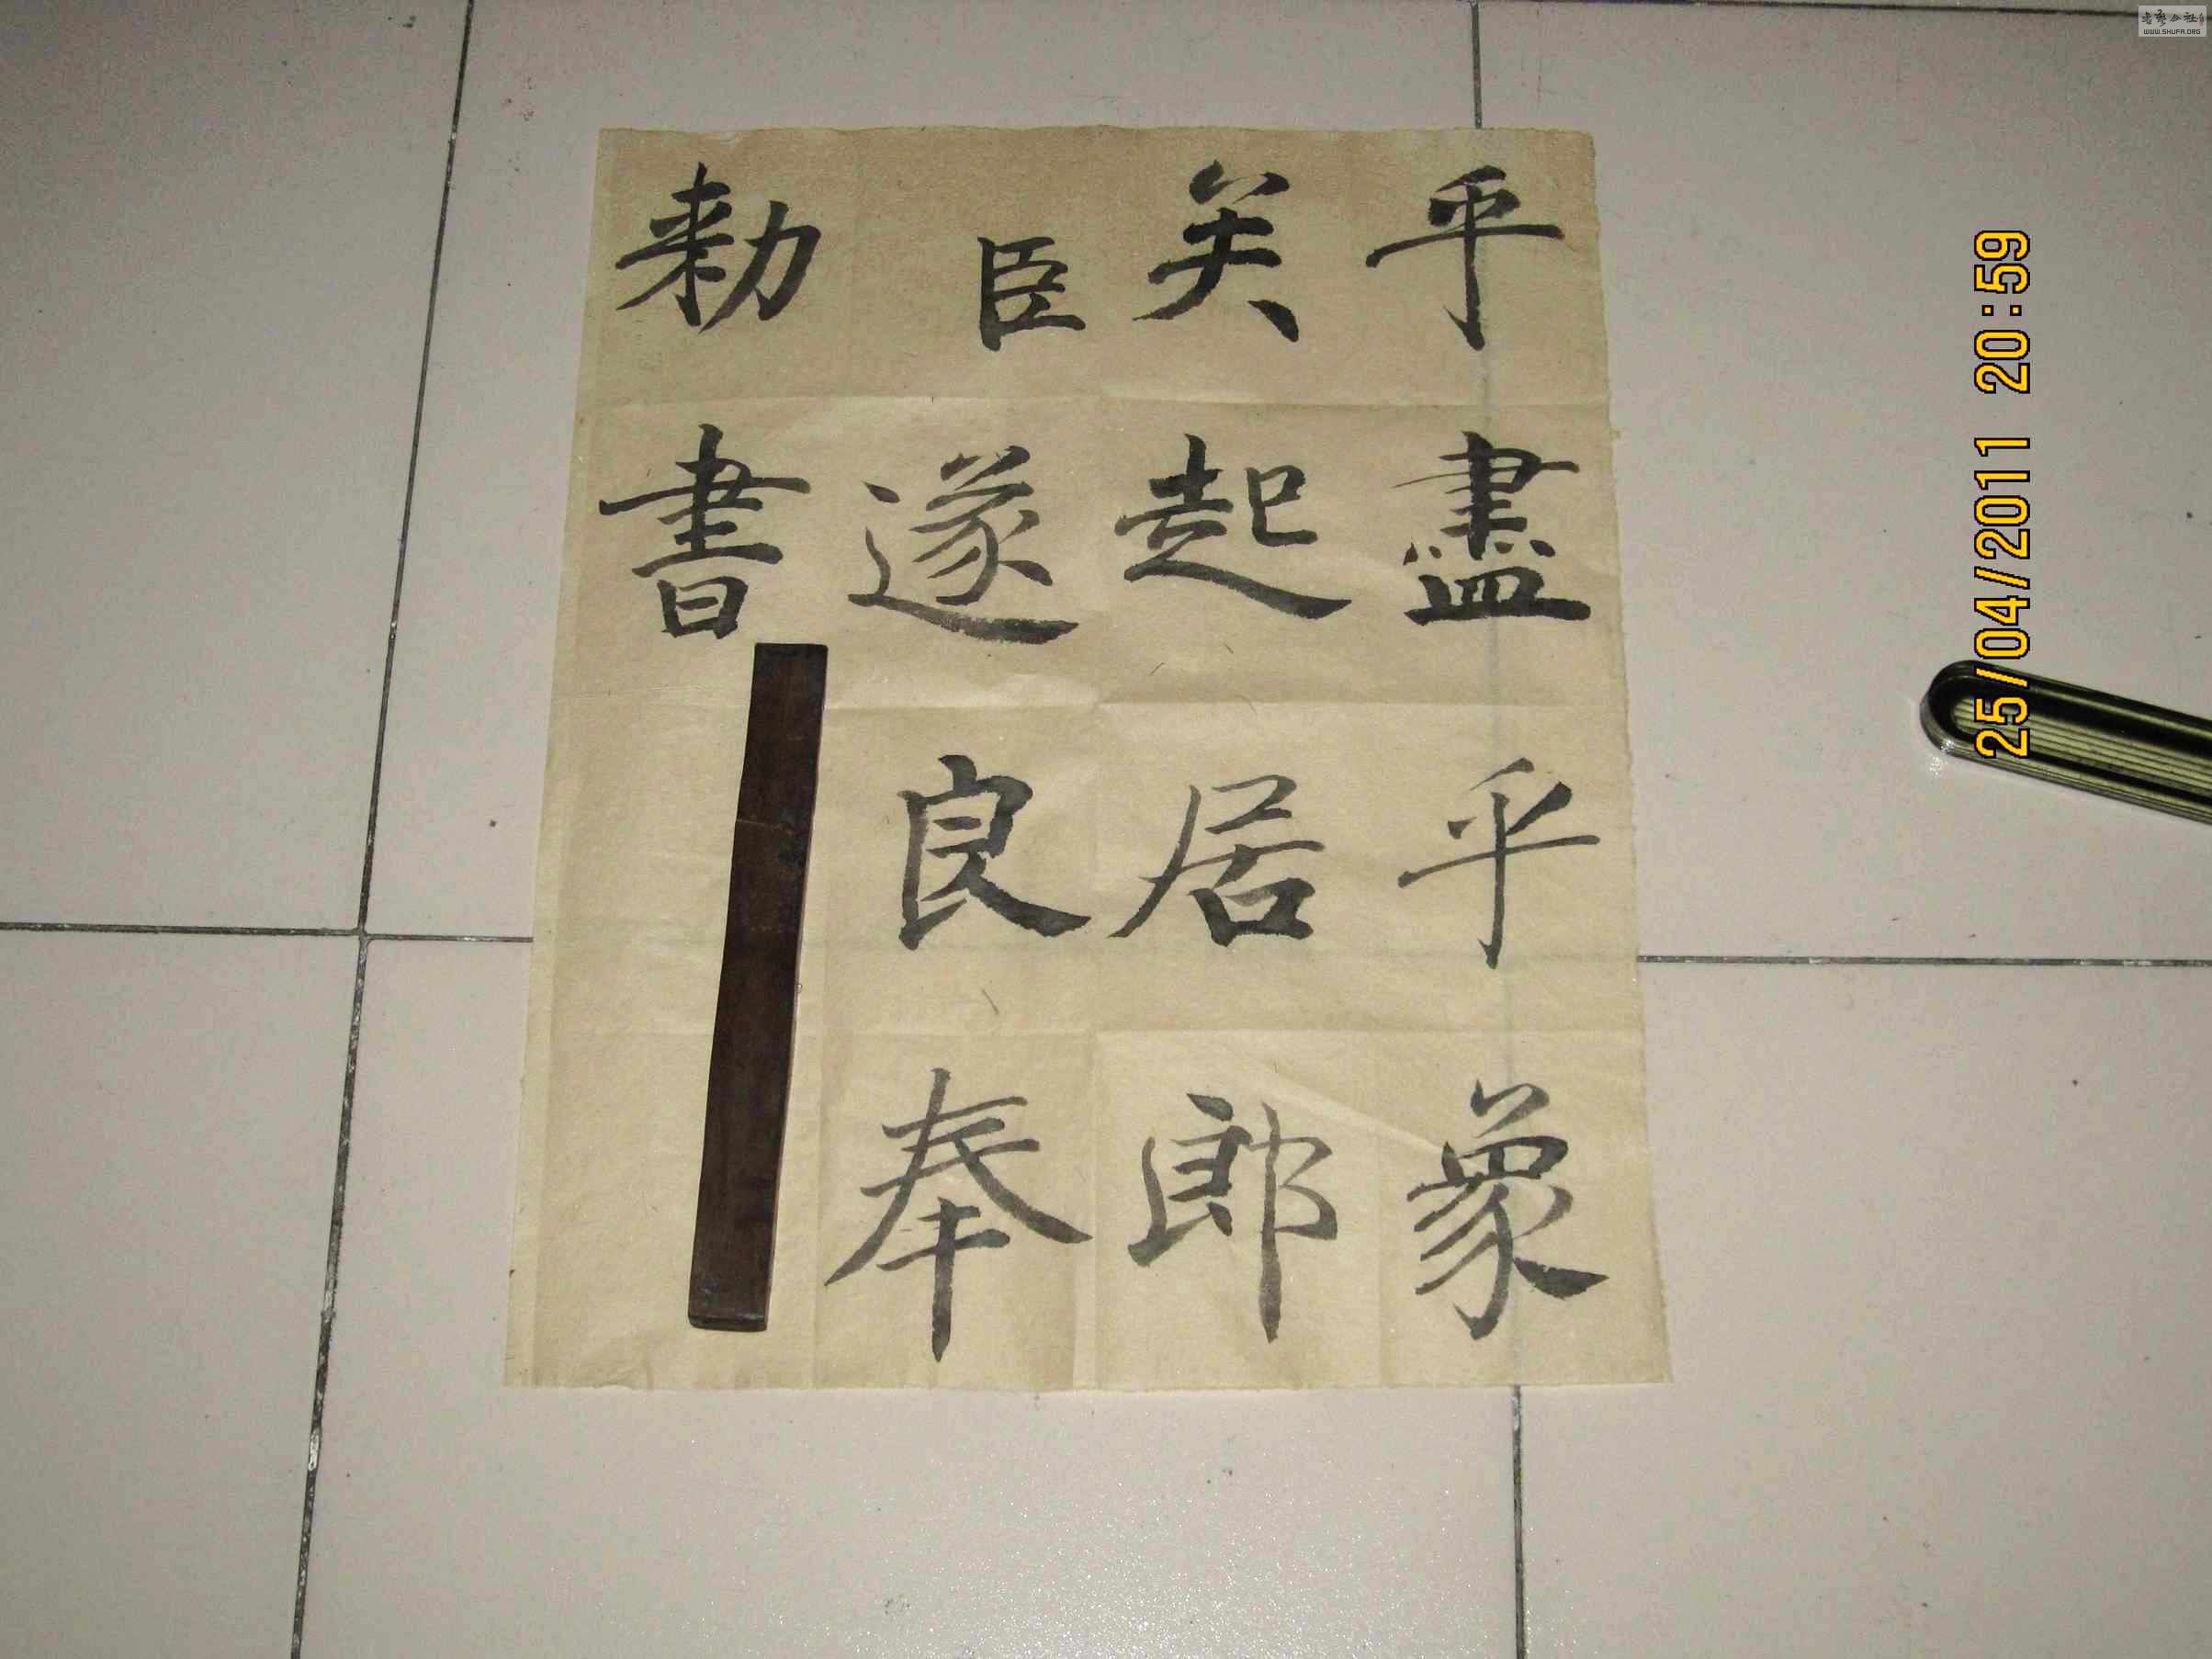 乎盡乎象
矣起居郎
臣遂良奉
勑書
25/04/2011 20:59
书法公社
WWW.SHUFA.ORG